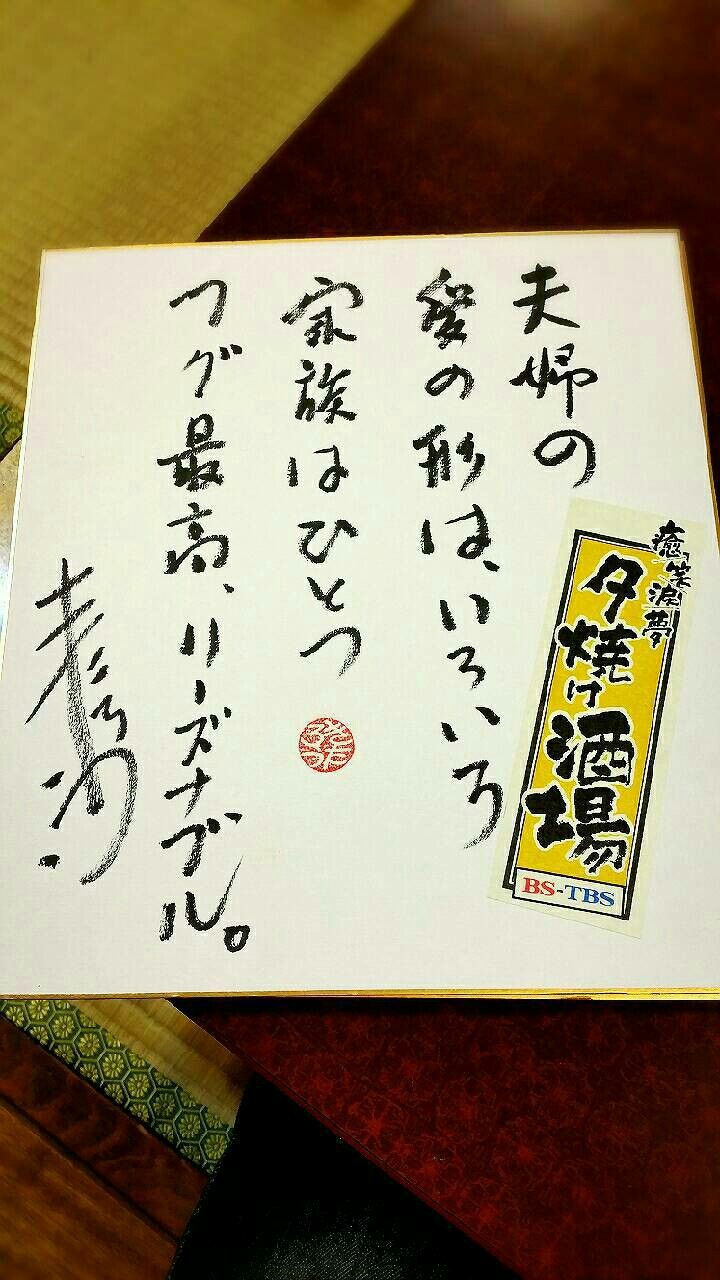 夫婦の
愛の形は、いろいろ
家族はひとつ
フグ最高、リーズナブル。
癒笑涙夢
夕焼け酒場
BS-TBS